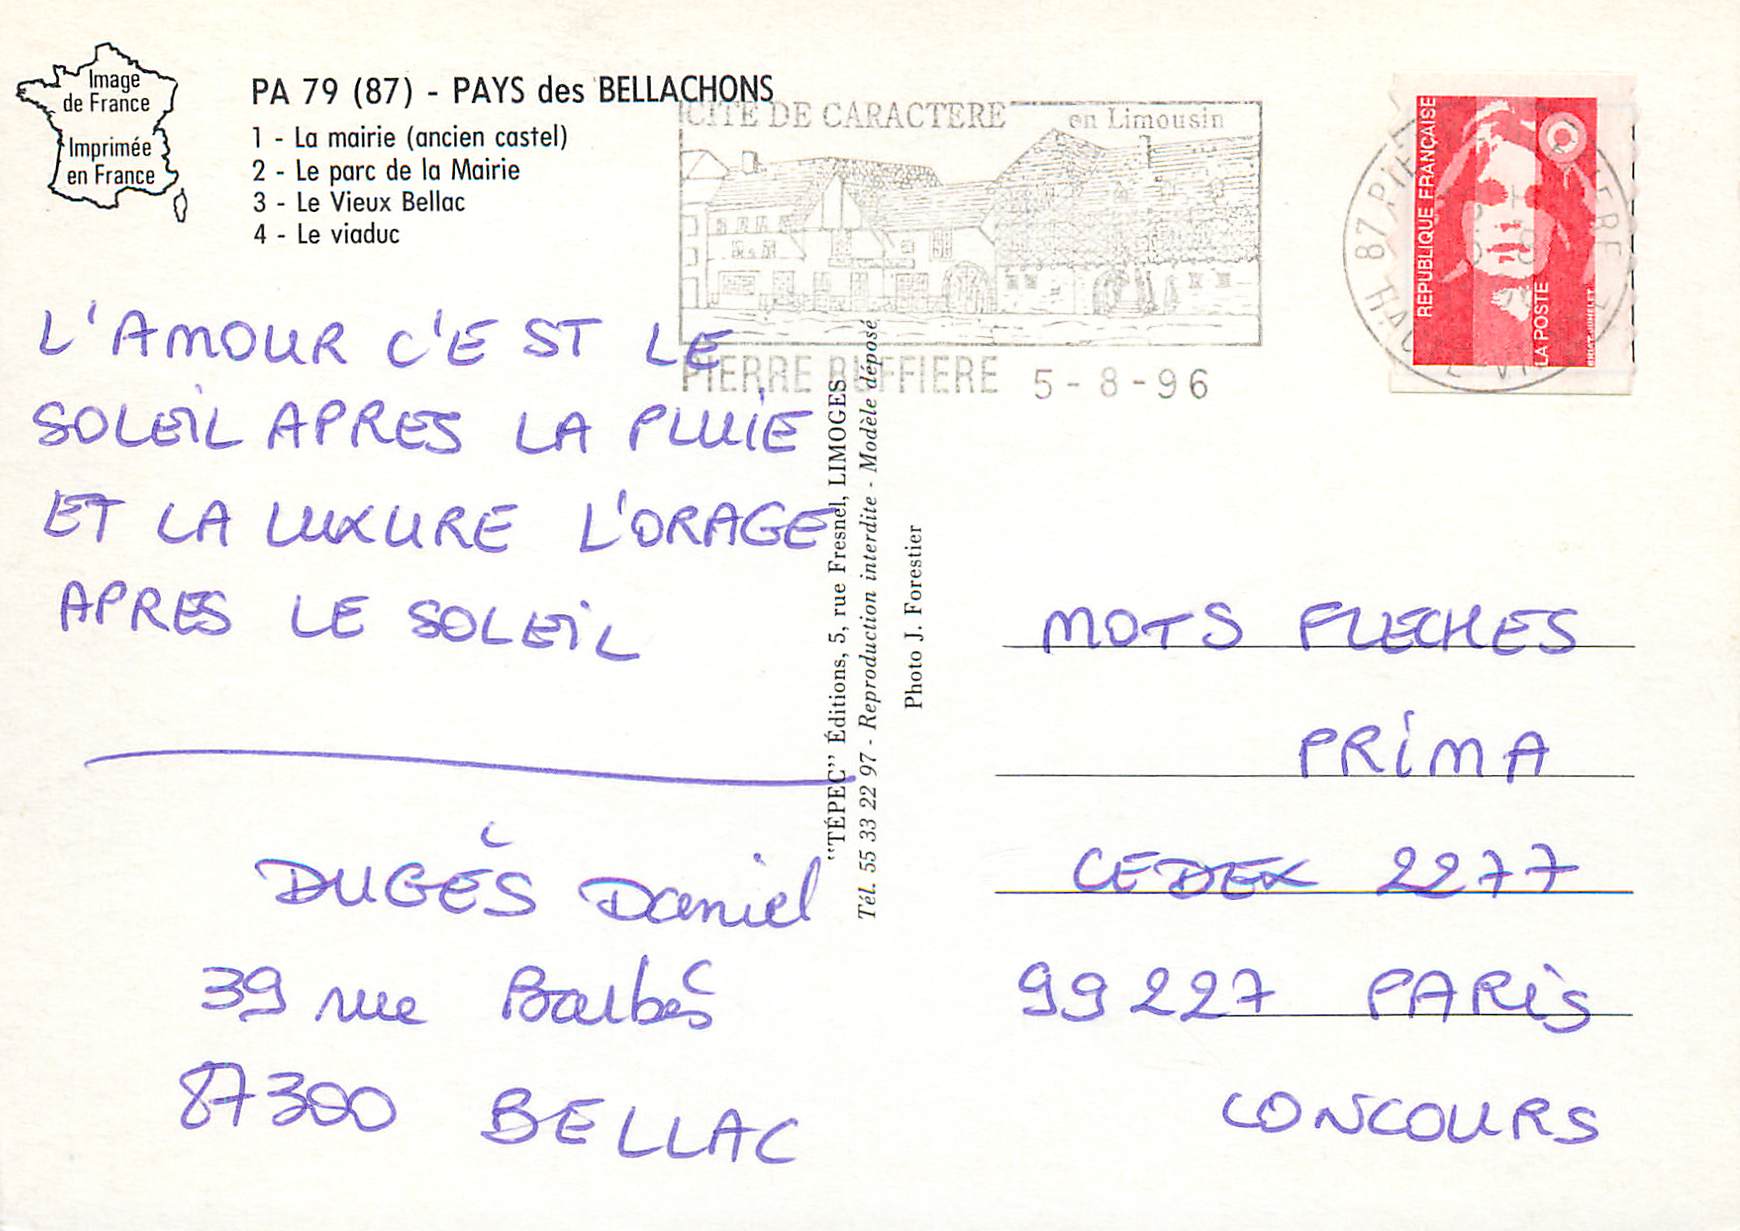 Image
de France
Imprimée
en France
PA 79 (87) - PAYS des BELLACHONS
1 - La mairie (ancien castel)
2 - Le parc de la Mairie
3 - Le Vieux Bellac
4 - Le viaduc
CITE DE CARACTERE en Limousin
PIERRE BUFFIERE 5-8-96
REPUBLIQUE FRANÇAISE
LA POSTE
L'AMOUR C'EST LE
SOLEIL APRES LA PLUIE
ET LA LUXURE L'ORAGE
APRES LE SOLEIL
DUGÈS Daniel
39 rue Barbès
87300 BELLAC
"TÉPEC" Éditions, 5, rue Fresnel, LIMOGES
Tél. 55 33 22 97 - Reproduction interdite - Modèle déposé
Photo J. Forestier
MOTS FLECHES
PRIMA
CEDEX 2277
99227 PARIS
CONCOURS